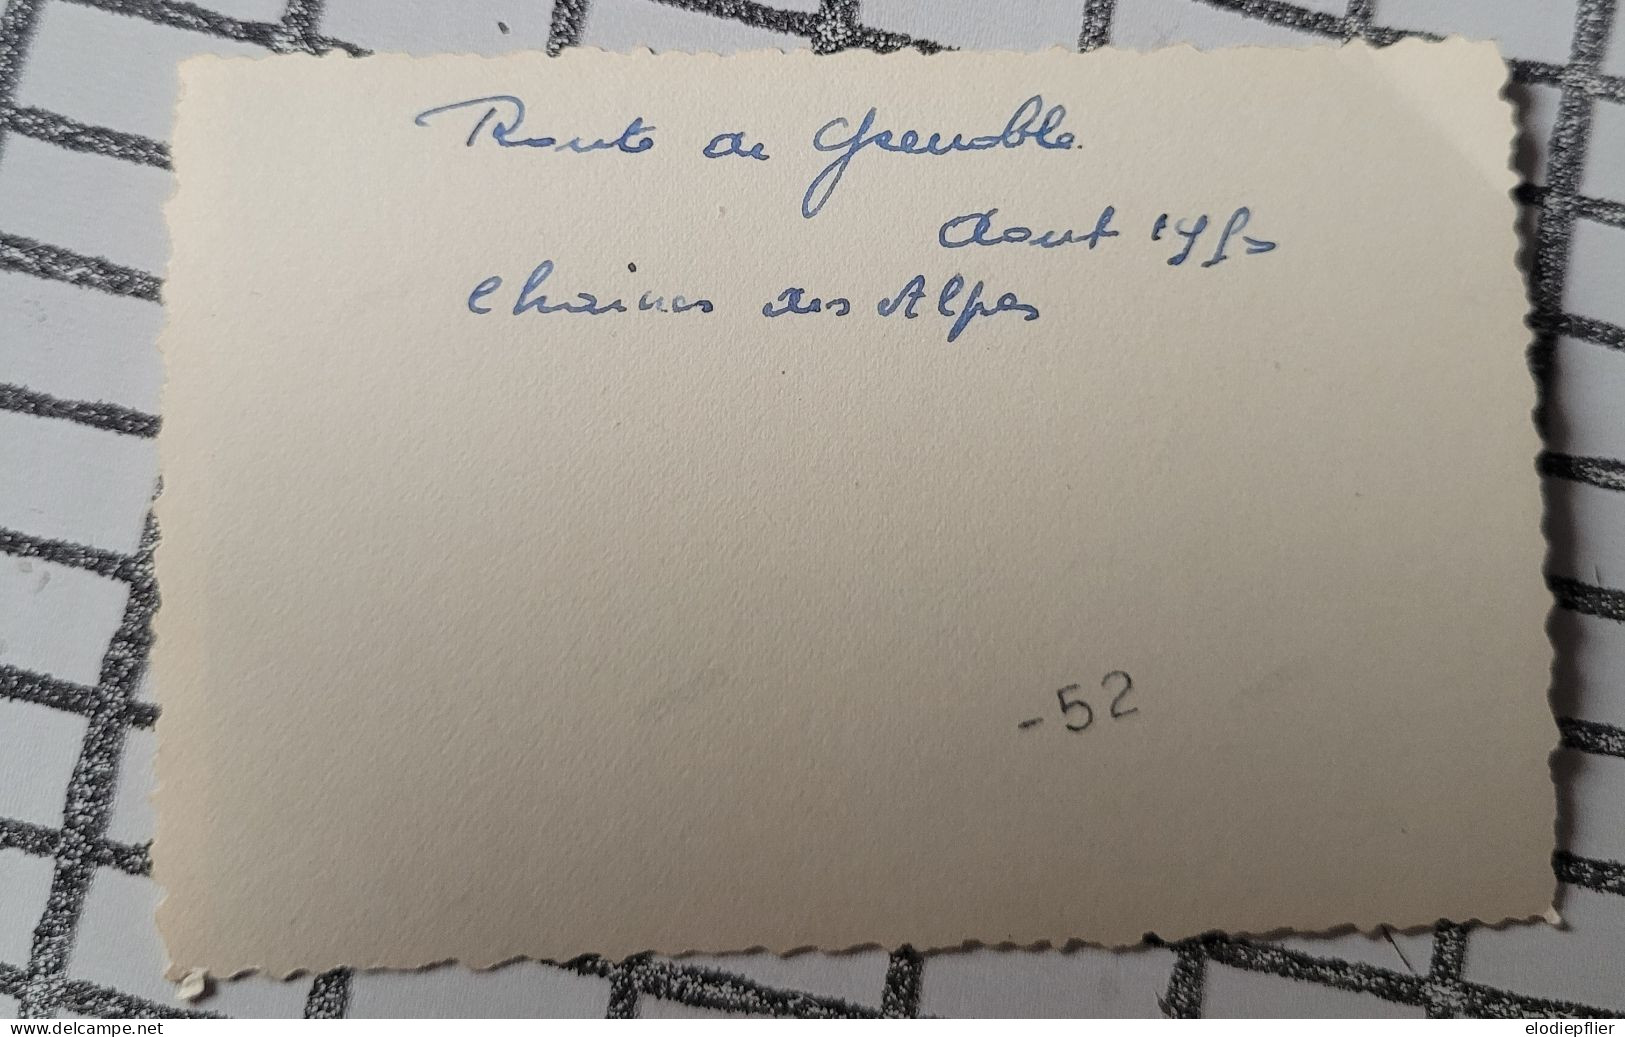 Route de Grenoble
Aout 1950
Chaines des Alpes
-52
www.delcampe.net
elodiepflier